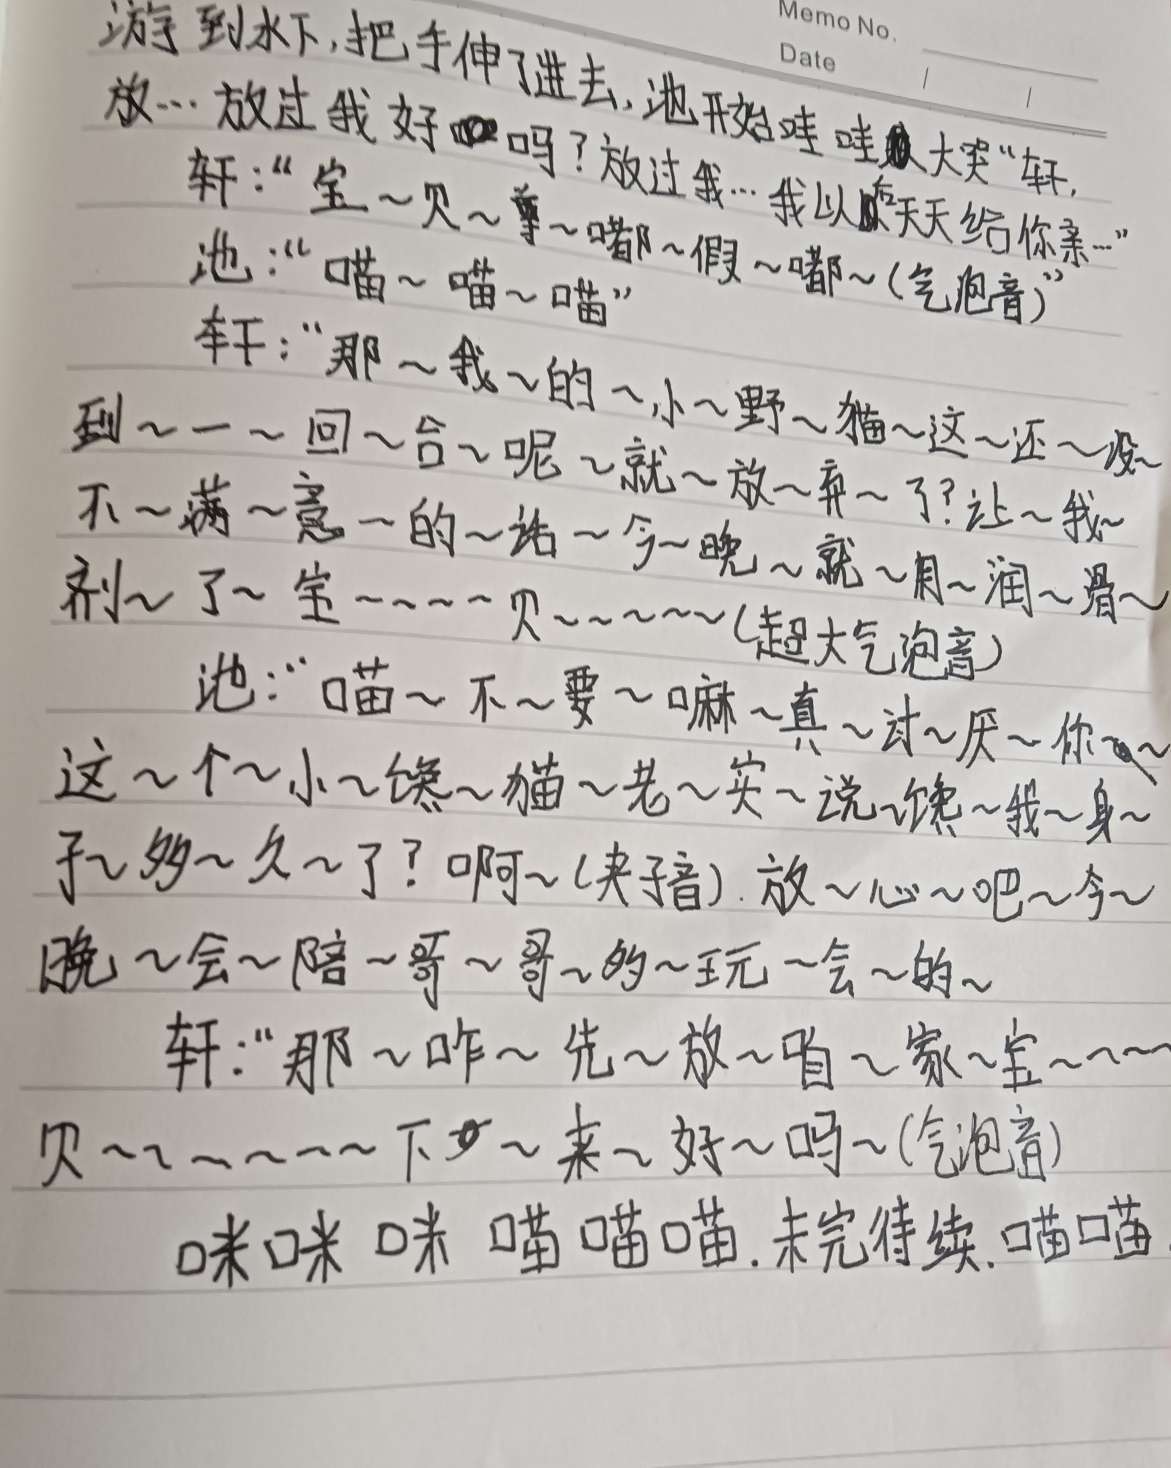 Memo No.
Date
游到水下,把手伸了进去,池开始哇哇大哭“轩,
放…放过我好吗?放过我…我以后天天给你亲…”
轩:“宝~贝~~嘟~假~嘟~(气泡音)”
池:“喵~喵~喵”
轩:“那~我~的~小~野~猫~这~还~没~
到~一~回~合~呢~就~放~弃~了?让~我~
不~满~意~的~话~今~晚~就~用~润~滑~
剂~了~宝~~~~贝~~~~~(超大气泡音)
池:“喵~不~要~嘛~真~讨~厌~你~
这~个~小~馋~猫~老~实~说~馋~我~身~
子~多~久~了?啊~(夹子音).放~心~吧~今~
晚~会~陪~哥~哥~多~玩~会~的~
轩:“那~咋~先~放~咱~家~宝~~~~
贝~~~~~~下~来~好~吗~(气泡音)
咪咪咪喵喵喵.未完待续.喵喵.